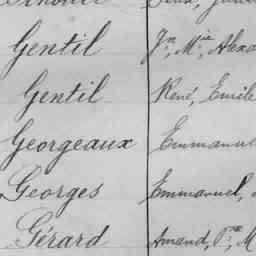 Gentil Jn, Mie, Alexa
Gentil René, Emile
Georgeaux Emmanuel
Georges Emmanuel,
Gérard Amand, Pre, M